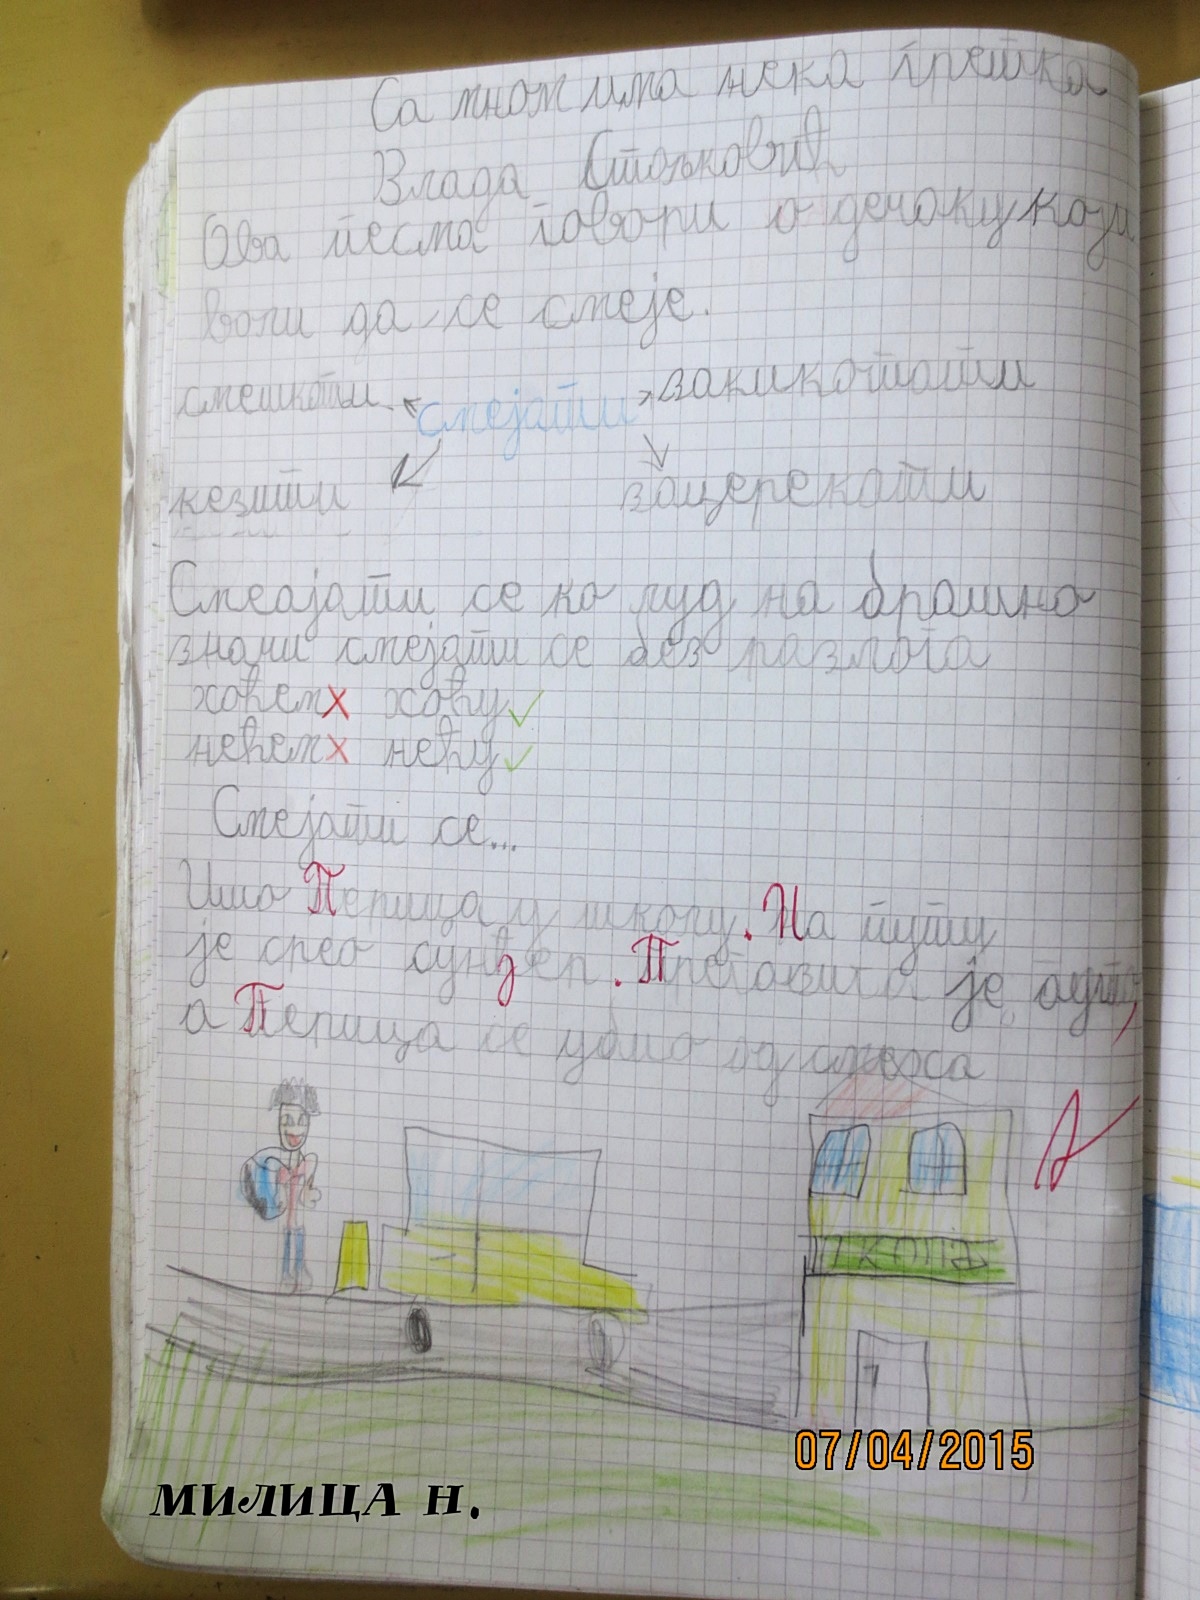 Са мном има нека грешка
Влада Стојковић
Ова песма говори о дечаку који
воли да се смеје.
смешкати смејати закикотати
кезити зацерекати
Смеајати се ко луд на брашно
значи смејати се без разлога
хоћемх хоћу✓
нећемх нећу✓
Смејати се...
Ишо Перица у школу. На путу
је срео сунђер. Прегазило је ауто,
а Перица се убио од смеоса
ШКОЛА
07/04/2015
МИЛИЦА Н.